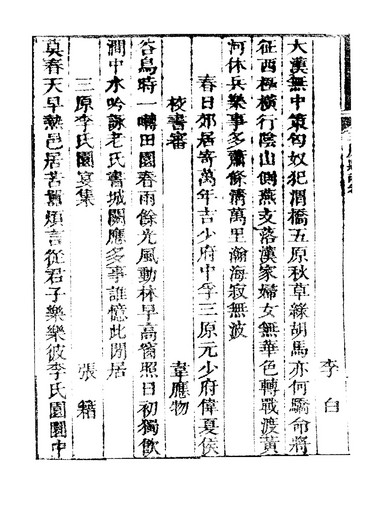 李白
大漢無中策匈奴犯渭橋五原秋草綠胡馬亦何驕命將
征西極橫行陰山側燕支落漢家婦女無華色轉戰渡黃
河休兵樂事多蕭條清萬里瀚海寂無波
春日郊居寄萬年吉少府中孚三原元少府偉夏侯
校書審
韋應物
谷鳥時一囀田園春雨餘光風動林早高窗照日初獨飲
澗中水吟詠老氏書城闕應多事誰憶此閒居
三原李氏園宴集
張籍
莫春天早熱邑居苦囂煩言從君子樂樂彼李氏園園中